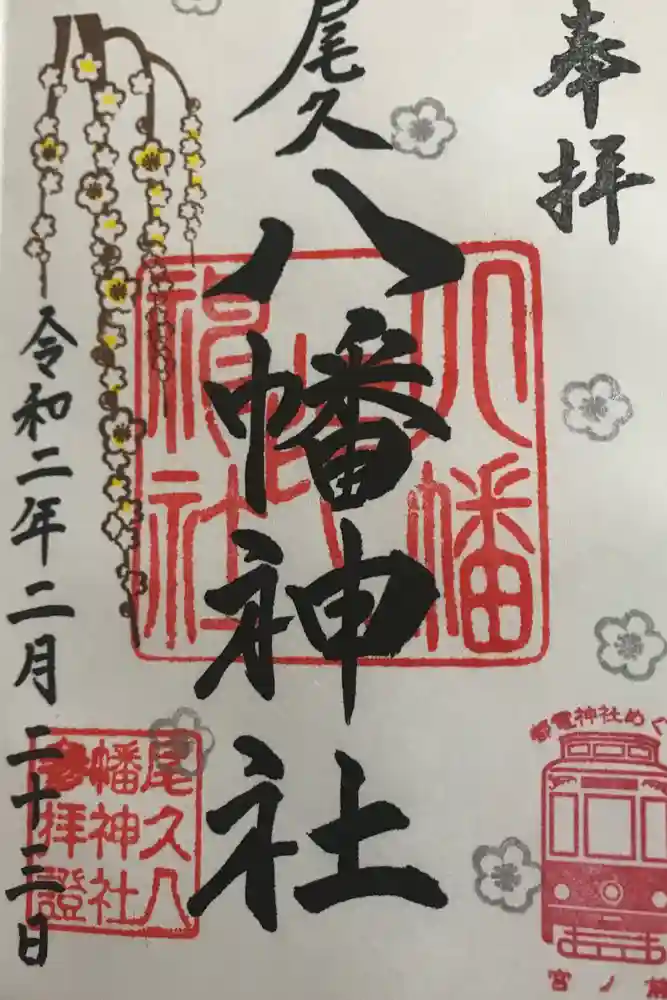 奉拝
尾久
八幡神社
令和二年二月二十三日
八幡
神社
尾久八
幡神社
参拝證
都電神社めぐ
宮ノ前